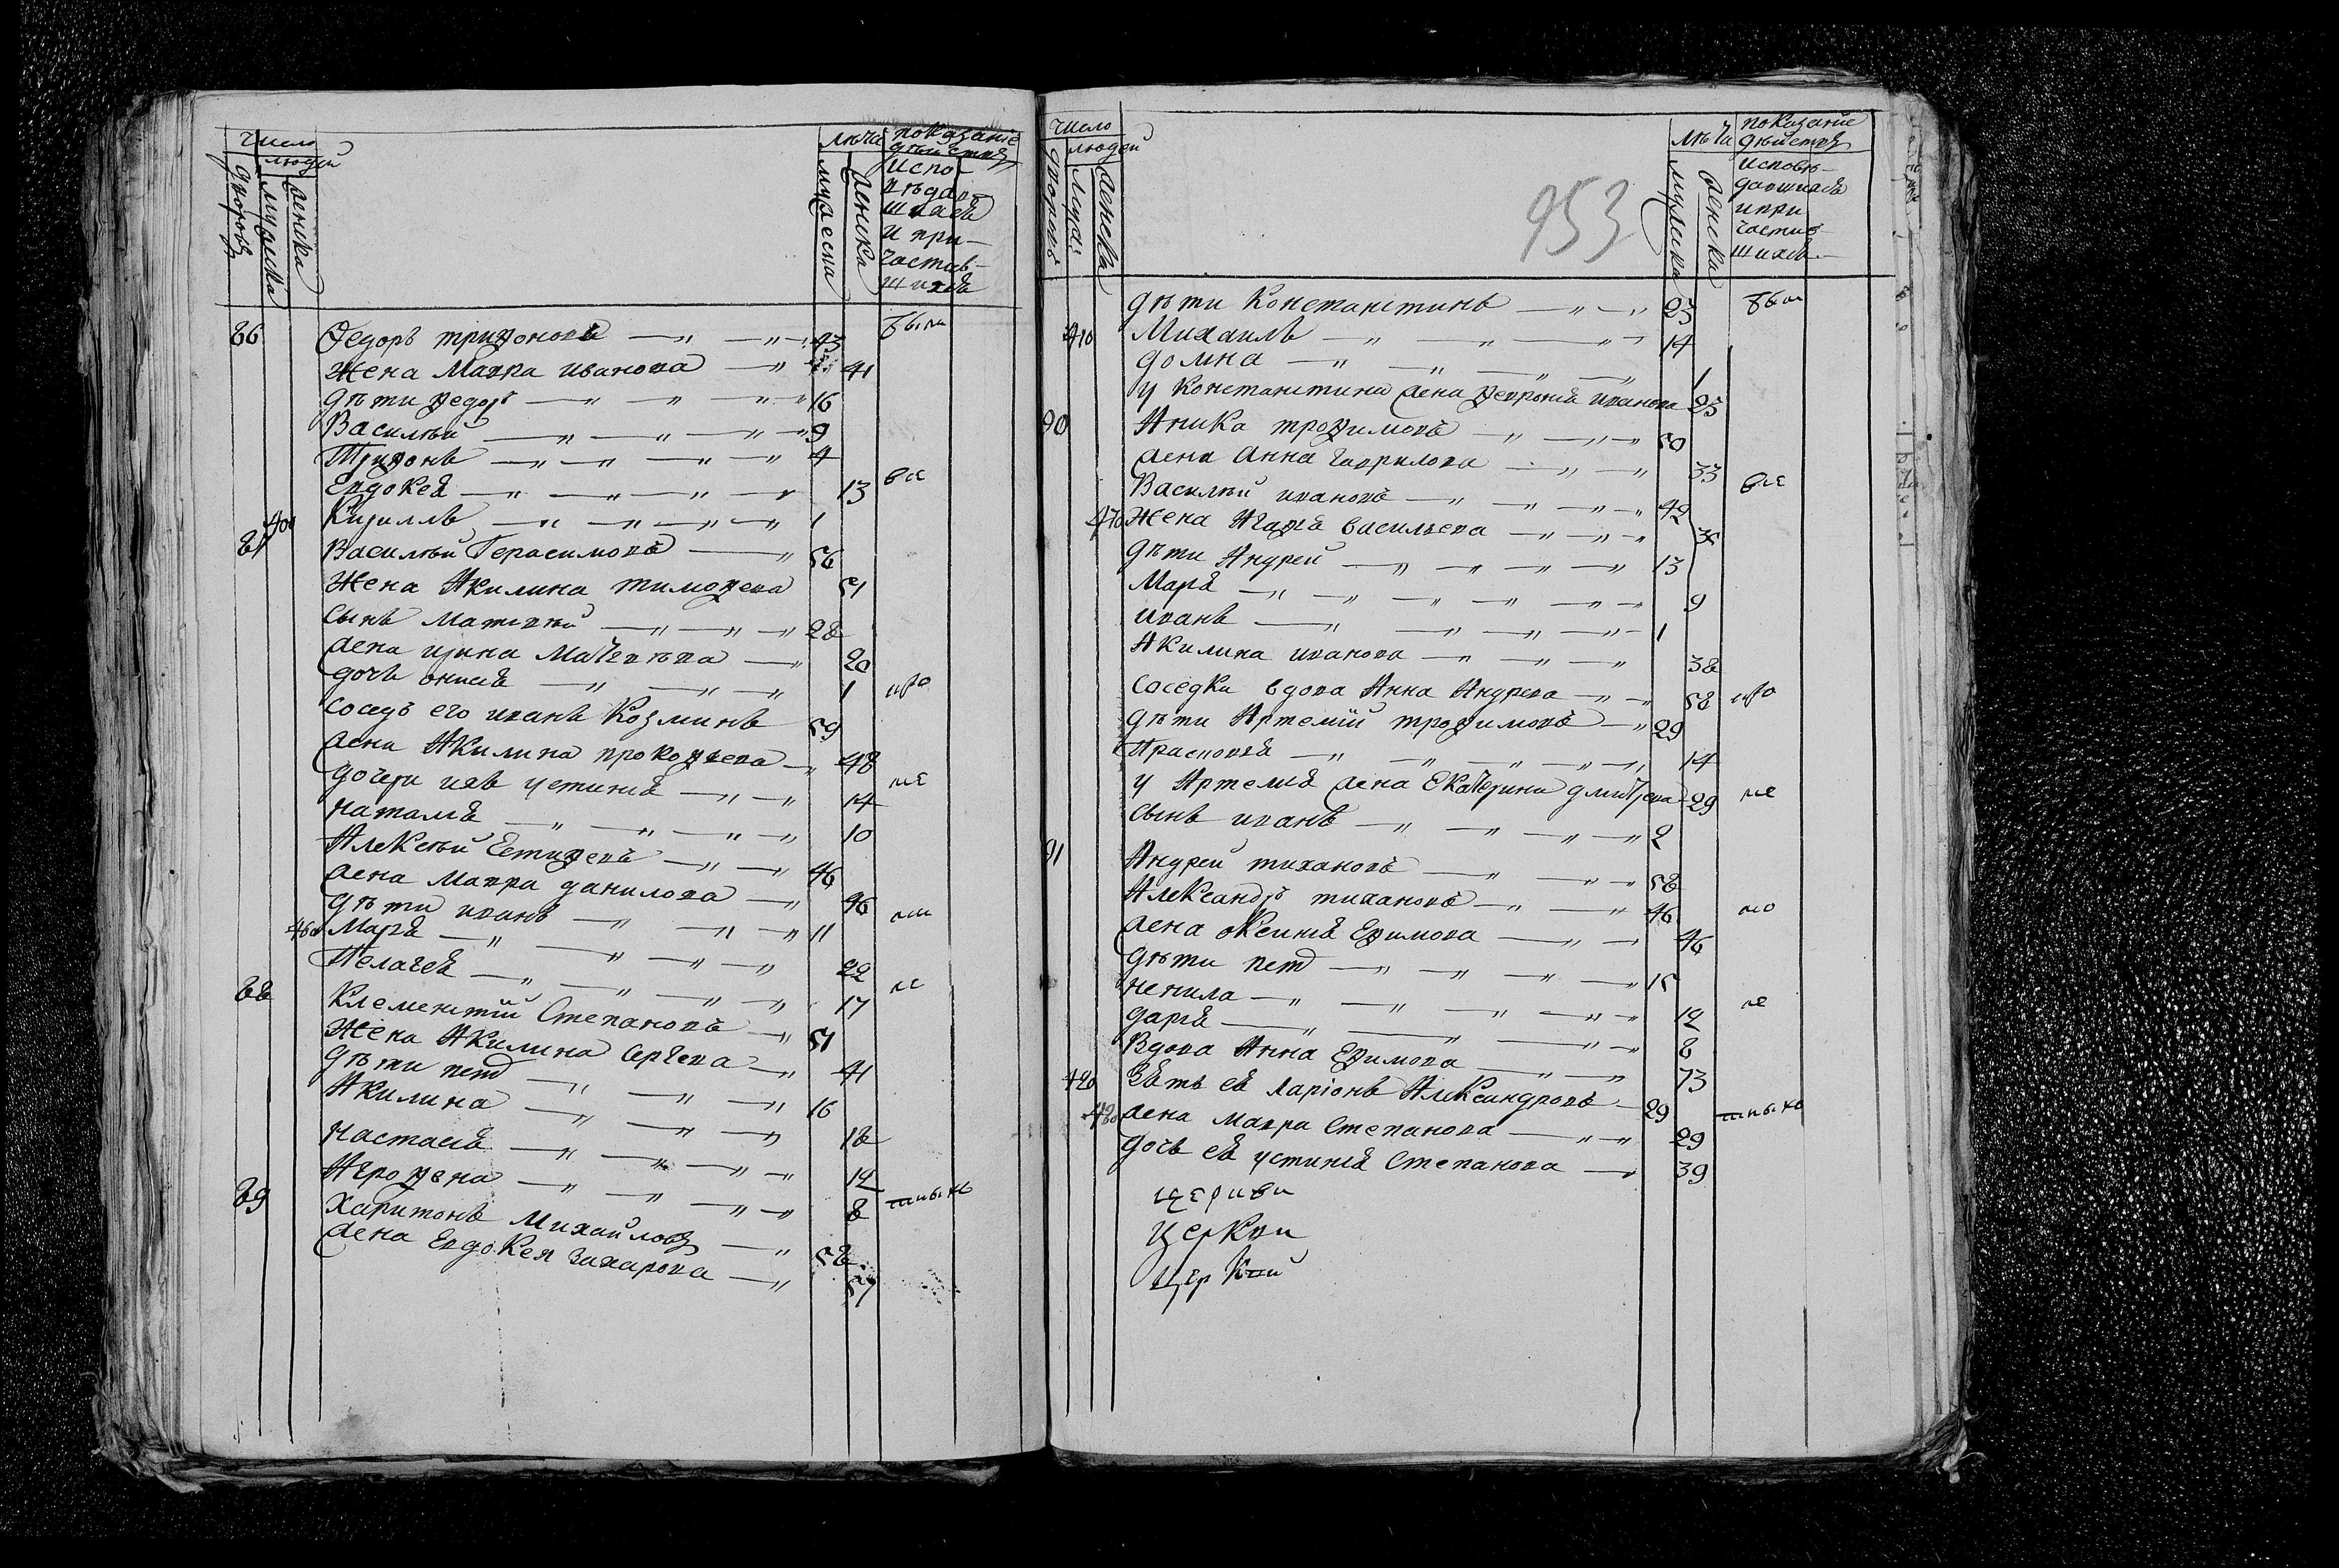 число
людей
дворовъ
мужеска
женска
лѣта
мужеска
женска
показаніе
дѣйства
испо-
вѣдав-
шихся
и при-
частив-
шихся
86 Федоръ трифоновъ 43 были
жена Мавра иванова 41
дѣти федоръ 16
Василѣй 9
Трифонъ 4
Евдокея 13
400 Кирилъ 1
87 Василѣй Герасимовъ 56
жена Акилина тимофеева 51
сынъ Матвѣй 28
жена ирина Матвѣева 20
дочь онисья 1
сосѣдъ его иванъ Козминъ 59
жена Акилина прокофьева 48
дочери ихъ устинья 14
наталья 10
Алексѣй Естифеевъ 46
жена Мавра данилова 46
дѣти иванъ 11
460 Марья 22
Пелагея 17
88 Климентїй Степановъ 51
жена Акилина Сергѣева 41
дѣти петръ 16
Акилина 18
настасья 12
Аграфена 8
89 Харитонъ Михайловъ 58
жена Евдокея захарова 57
число
людей
дворовъ
мужес
женска
953
лѣта
мужеска
женска
показаніе
дѣйства
исповѣ-
давшихся
и при
частив-
шихся
дѣти Константинъ 23 были
410 Михаилъ 14
домна 1
у Константина жена февронья иванова 25
90 Аника трофимовъ 50
жена Анна гаврилова 33
Василѣй ивановъ 42
470 жена Агафья васильева 38
дѣти Андрей 13
Марья 9
иванъ 1
Акилина иванова 38
соседка вдова Анна Андреева 58
дѣти Артемїй трофимовъ 29
Прасковья 14
у Артемья жена Екатерина дмитрева 29
сынъ иванъ 2
91 Андрей тихановъ 58
Александръ тихановъ 46
жена оксинья Ефимова 46
дѣти петръ 15
ненила 12
дарья 8
Вдова Анна Ефимова 73
420 Зѣть ея ларіонъ Александровъ 29
480 жена Мавра Степанова 29
дочь ея устинья Степанова 39
церкви
церкви